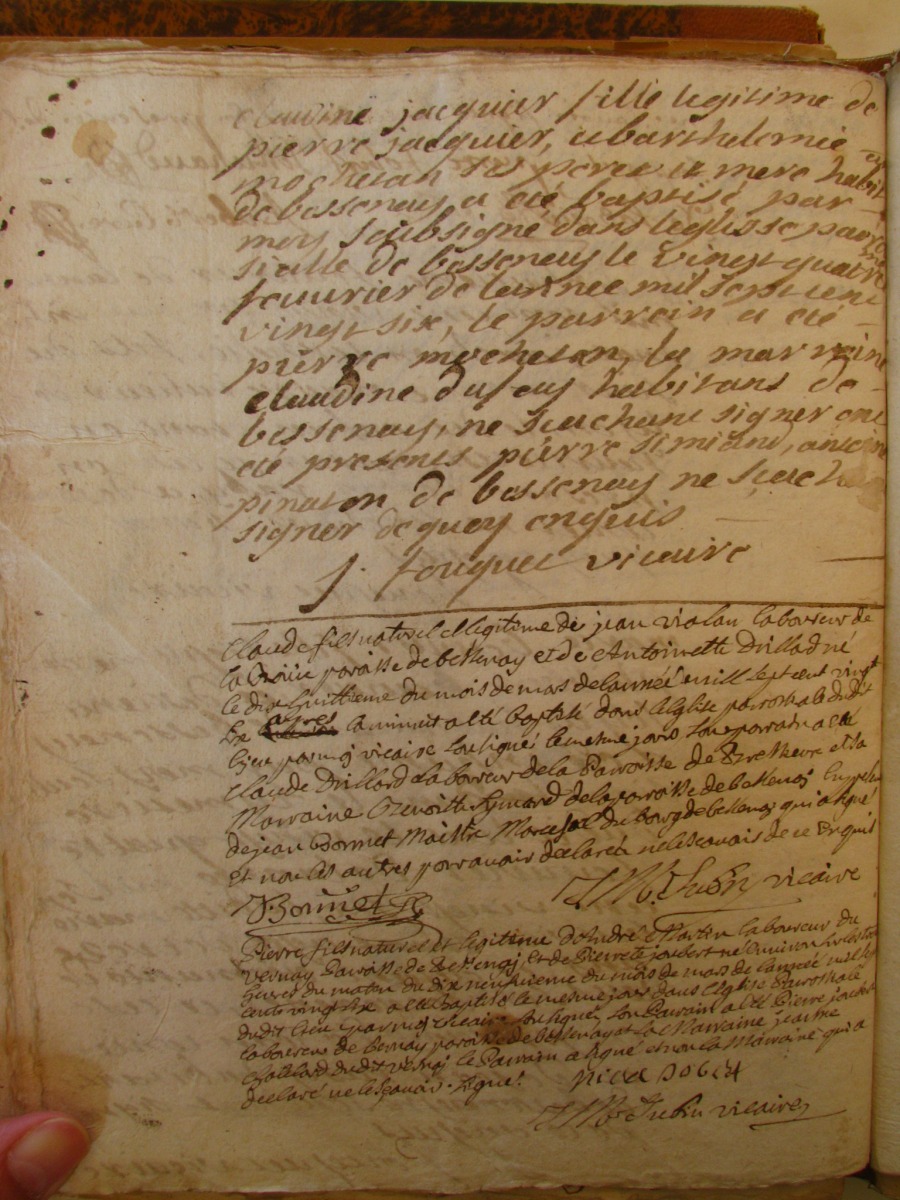 claudine jacquier fille legitime de
pierre jacquier, et barthelemie
mocheton ses pere et mere habit
de bessenay a eté baptisé par
moy soubsigné dans leglisse parro
sialle de bessenay le vingt quatre
feuurier de lannee mil sept cent
vingt six, le parrein a eté
pierre mocheton, la marreine
claudine dufay habitans de
bessenay, ne scachant signer ont
eté presents pierre simiand,
pinaton de bessenay ne scach
signer de quoy enquis
j. fouquet vicaire
Claude fils naturel et legitime de jean violan laboureur de
la paroisse de bessenay et de Antoinette Drillard né
le dix huittieme du mois de mars de lannéé mill sept cent vingt
six a minuit a eté baptisé dans l'Eglise parroissiale dudit
lieu par moj vicaire sousigné le mesme jour son parrain a eté
Claude Drillard laboureur de la Parroisse de et sa
Marraine Benoitte de la parroisse de bessenoj
de jean Bonnet Maistre du bourg de bessenoj qui a signé
et non les autres pour auoir declaréz ne le scauoir de ce Enquis
Bonnet JM Jubin vicaire
Pierre fils naturel et legitime d'André Martin laboureur du
Vernay Parroisse de Bessenoj et de Pierrete joubert né Enuiron
heures du matin du dix neufuieme du mois de mars de lannéé mill sept
cents vingt six a eté Baptisé le mesme jour dans l'Eglise Parroissiale
dudit lieu par moj vicaire soussigné, son Parrain a eté Pierre joubert
laboureur de bernay paroisse de bessenay et la Marraine jeanne
dudit vernoj le Parrain a signé et non la Marraine qui a
declaré ne le scauoir signé.
JM Jubin vicaire